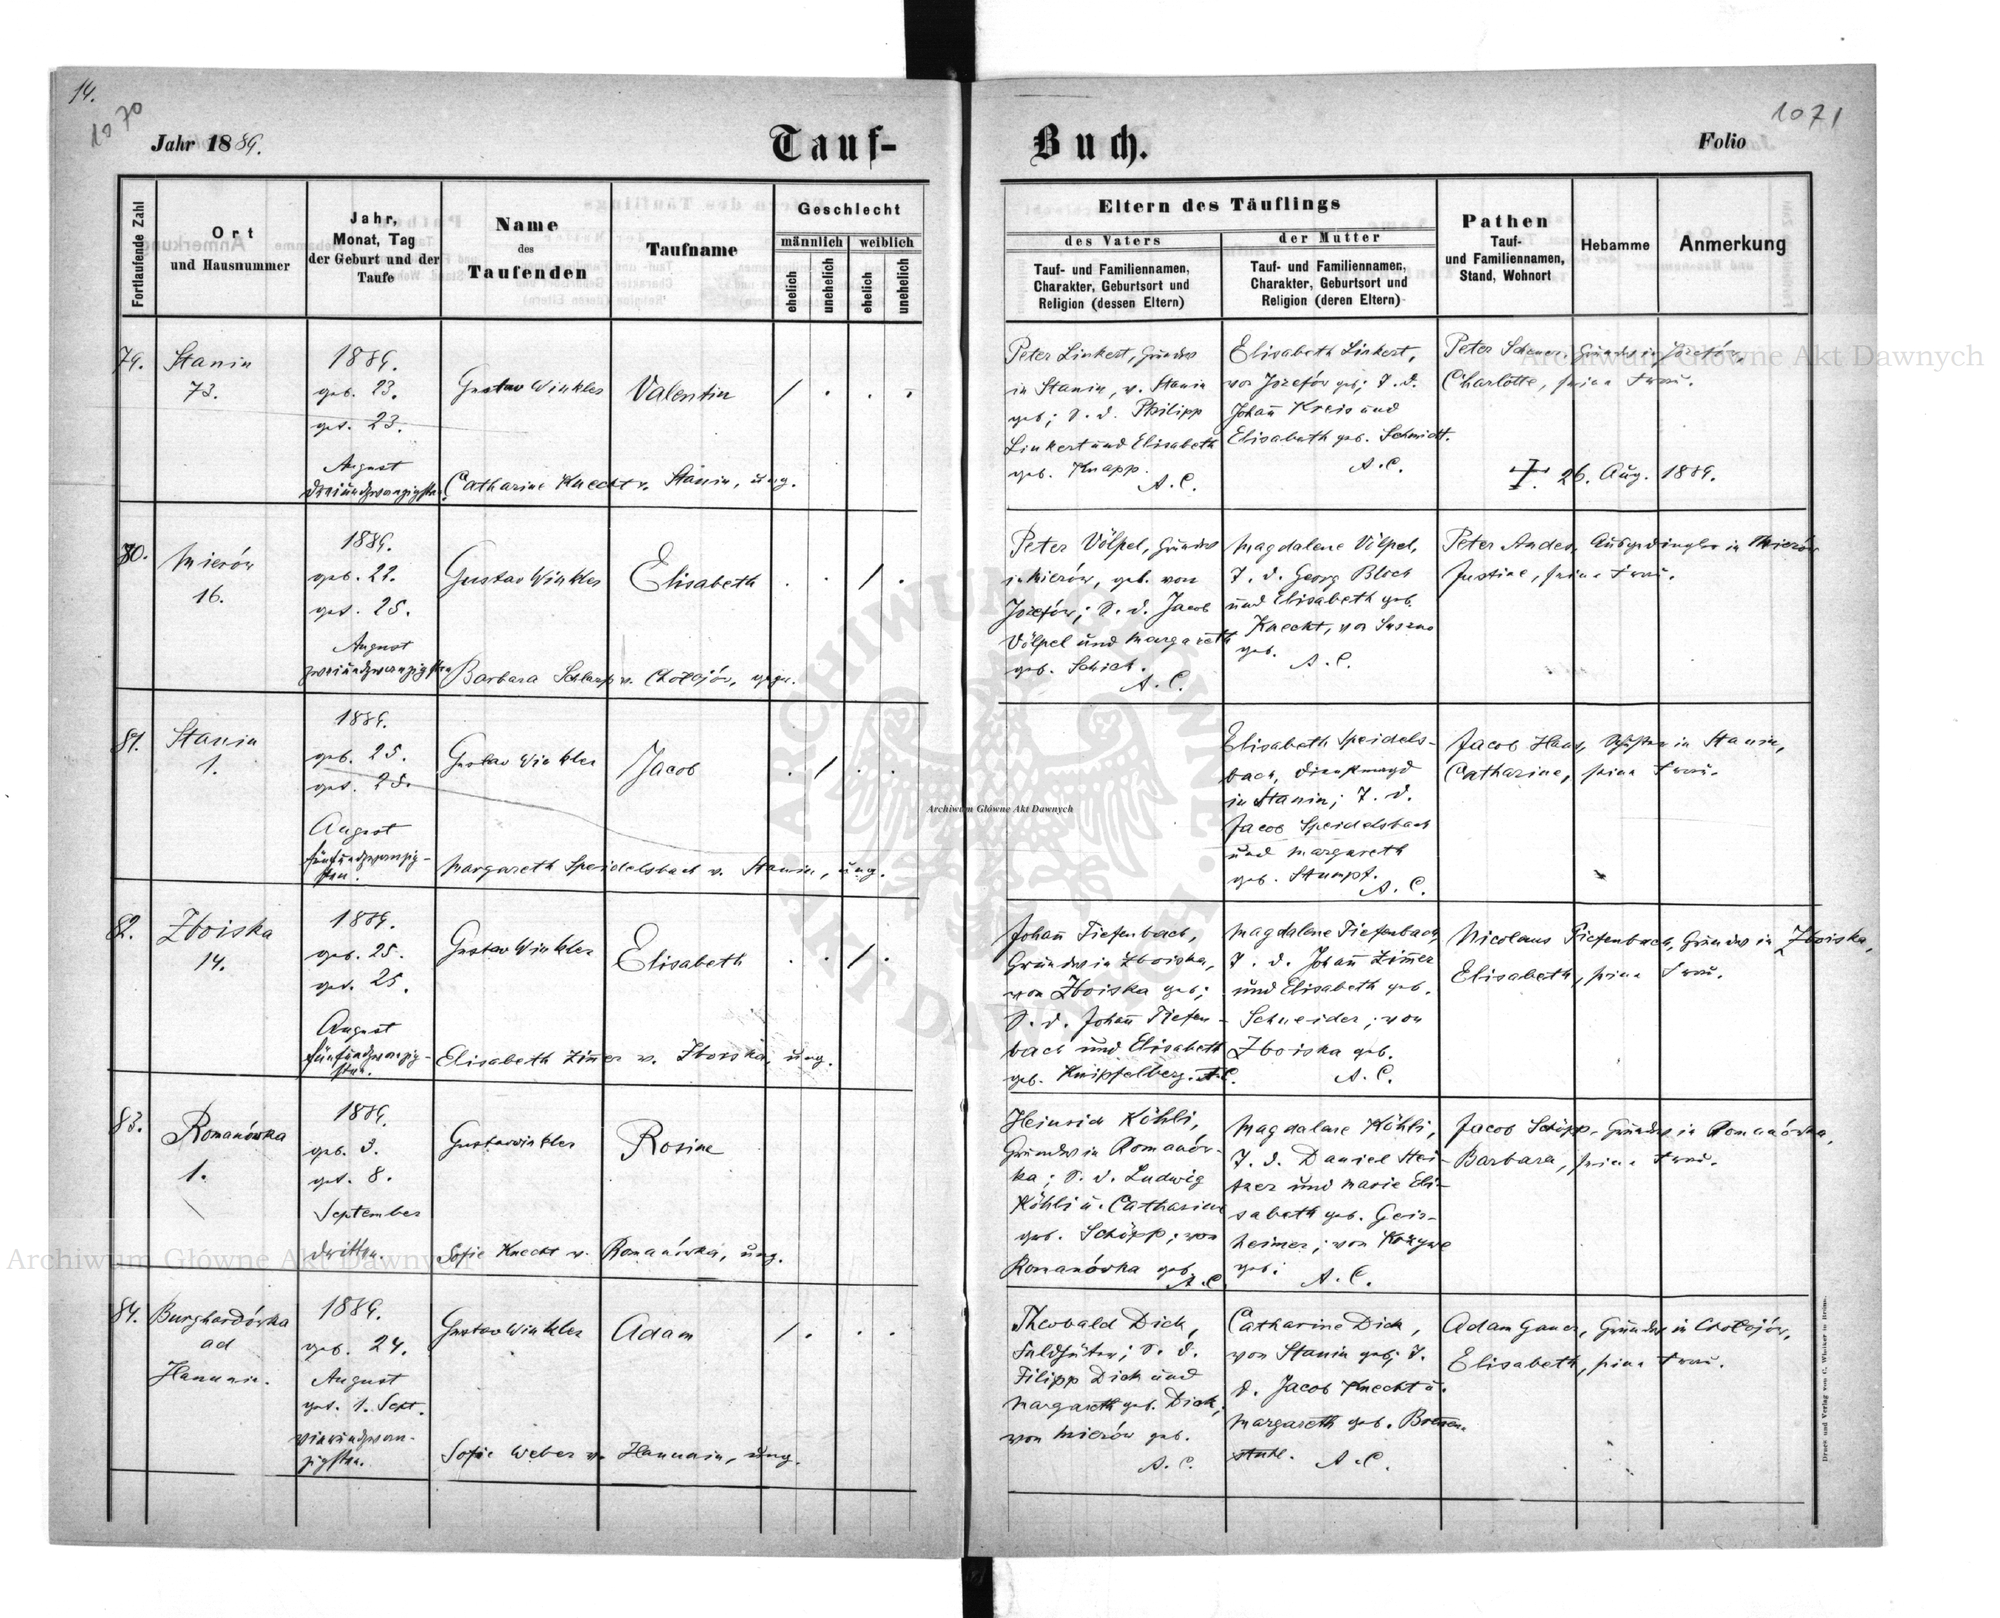 14.
1070
Jahr 1889.
Tauf-
Fortlaufende Zahl
Ort
und Hausnummer
Jahr,
Monat, Tag
der Geburt und der
Taufe
Name
des
Taufenden
Taufname
Geschlecht
männlich
weiblich
ehelich
unehelich
ehelich
unehelich
79.
Stanin
73.
1889.
geb. 23.
get. 23.
August
dreiundzwanzigsten
Gustav Winkler
Valentin
Catharine Knecht v. Stanin, ung.
80.
Mierów
16.
1889.
geb. 22.
get. 25.
August
zweiundzwanzigsten
Gustav Winkler
Elisabeth
Barbara v. Chołojów, gepr.
81.
Stanin
1.
1889.
geb. 25.
get. 25.
August
fünfundzwanzig-
sten.
Gustav Winkler
Jacob
Margareth Speidelsbach v. Stanin, ung.
82.
Zboiska
14.
1889.
geb. 25.
get. 25.
August
fünfundzwanzig-
sten.
Gustav Winkler
Elisabeth
Elisabeth Zim̄er v. Zboiska, ung.
83.
Romanówka
1.
1889.
geb. 3.
get. 8.
September
dritten.
Gustav Winkler
Rosine
Sofie Knecht v. Romanówka, ung.
84.
Burghardówka
ad
Hanunin.
1889.
geb. 24.
August
get. 1. Sept.
vierundzwan-
zigsten.
Gustav Winkler
Adam
Sofie Weber v. Hanunin, ung.
1071
Buch.
Folio
Eltern des Täuflings
des Vaters
Tauf- und Familiennamen,
Charakter, Geburtsort und
Religion (dessen Eltern)
der Mutter
Tauf- und Familiennamen,
Charakter, Geburtsort und
Religion (deren Eltern)
Pathen
Tauf-
und Familiennamen,
Stand, Wohnort
Hebamme
Anmerkung
Peter Linkert, Grundw
in Stanin, v. Stanin
geb; S. d. Philipp
Linkert und Elisabeth
geb. Knapp.
A. C.
Elisabeth Linkert,
von Józefów geb; T. d.
Joham̄ Kreis und
Elisabeth geb. Schmidt.
A. C.
Peter Grundw in Józefów,
Charlotte, seine Frau.
26. Aug. 1889.
Peter Völpel, Grundw
in Mierów, geb. von
Józefów; S. d. Jacob
Völpel und Margareth
geb. Schick.
A. C.
Magdalene Völpel,
T. d. Georg Bloch
und Elisabeth geb.
Knecht, von Suszno
geb.
A. C.
Peter Andes, Ausgedingler in Mierów
Justine, seine Frau.
Elisabeth Speidels-
bach, Dienstmagd
in Stanin; T. d.
Jacob Speidelsbach
und Margareth
geb. Stumpf.
A. C.
Jacob Haas, Schuster in Stanin,
Catharine, seine Frau.
Joham̄ Tiefenbach,
Grundw in Zboiska,
von Zboiska geb;
S. d. Joham̄ Tiefen-
bach und Elisabeth
geb. Knipfelberg. A. C.
Magdalene Tiefenbach,
T. d. Joham̄ Zim̄er
und Elisabeth geb.
Schneider; von
Zboiska geb.
A. C.
Nicolaus Tiefenbach, Grundw in Zboiska,
Elisabeth, seine Frau.
Heinrich Köhli,
Grundw in Romanów-
ka; S. d. Ludwig
Köhli u. Catharine
geb. Schöpp; von
Romanówka geb.
A. C.
Magdalene Köhli,
T. d. Daniel Hei-
tzer und Marie Eli-
sabeth geb. Geis-
heimer; von Krzywe
geb.
A. C.
Jacob Schöpp, Grundw in Romanówka,
Barbara, seine Frau.
Theobald Dick,
Feldhüter; S. d.
Filipp Dick und
Margareth geb. Dick,
von Mierów geb.
A. C.
Catharine Dick,
von Stanin geb; T.
d. Jacob Knecht u.
Margareth geb.
stuhl. A. C.
Adam Gauer, Grundw in Chołojów,
Elisabeth, seine Frau.
Archiwum Główne Akt Dawnych
Archiwum Główne Akt Dawnych
Archiwum Główne Akt Dawnych
ARCHIWUM GŁÓWNE AKT DAWNYCH